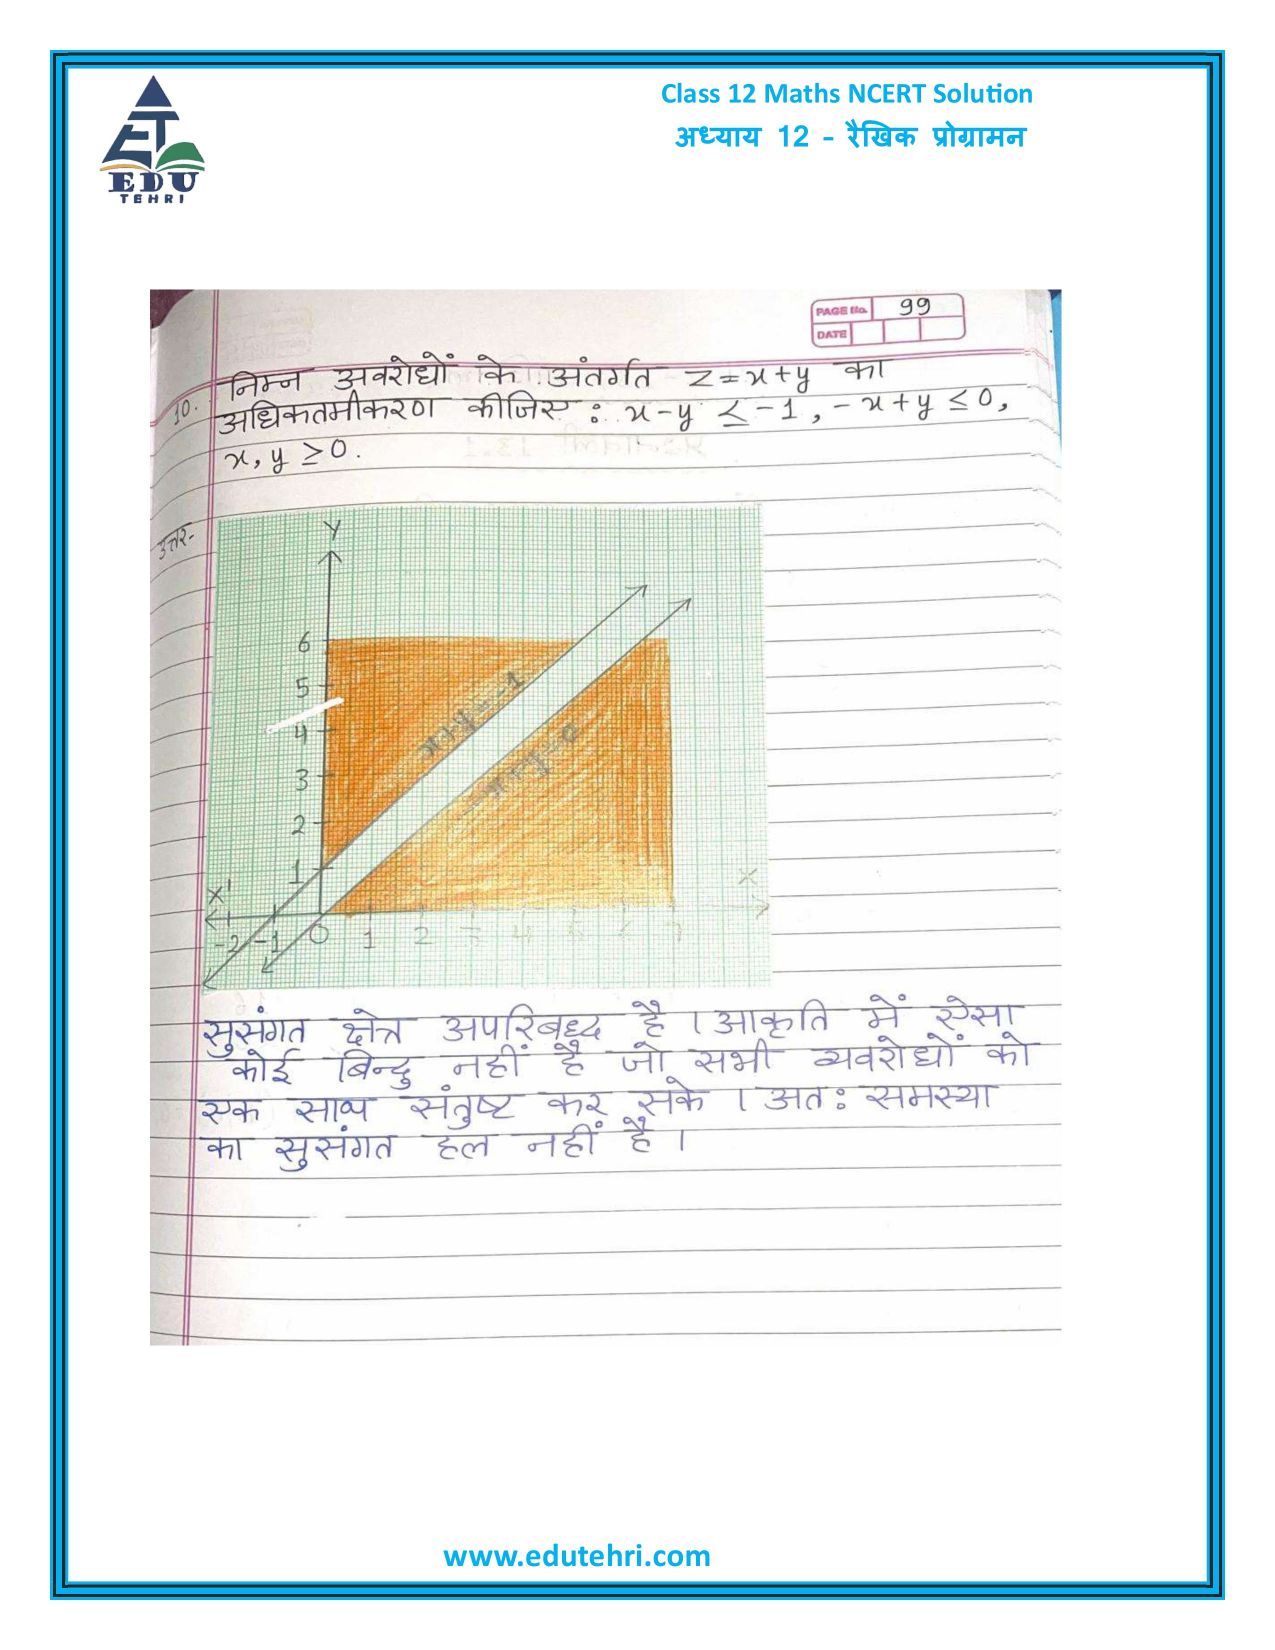 Class 12 Maths NCERT Solution
अध्याय 12 - रैखिक प्रोग्रामन
EDU
TEHRI
PAGE No. 99
DATE
10. निम्न अवरोधों के अंतर्गत z=x+y का
अधिकतमीकरण कीजिए : x-y ≤ -1, -x+y ≤ 0,
x, y ≥ 0.
उत्तर-
Y
6
5
4
3
2
1
x+y=-1
-x+y=0
X'
X
-2 -1 0 1 2 3 4 5 6 7
सुसंगत क्षेत्र अपरिबध्द है । आकृति में ऐसा
कोई बिन्दु नहीं है जो सभी व्यवरोधों को
एक साथ संतुष्ट कर सके । अतः समस्या
का सुसंगत हल नहीं है ।
www.edutehri.com